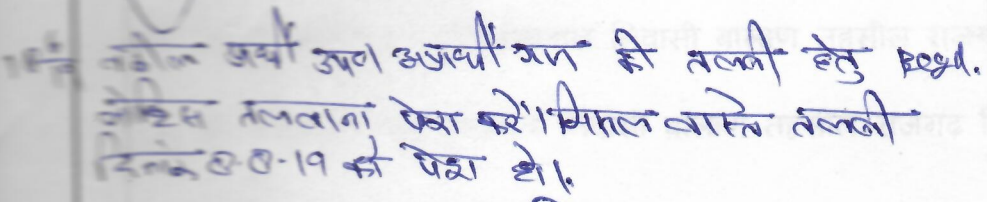 वकील प्रार्थी उप० अप्रार्थी गण की तलबी हेतु Regd.
नोटिस तलवाना पेश करें। मिसल वास्ते तलबी
दिनांक 8-8-19 को पेश हो।